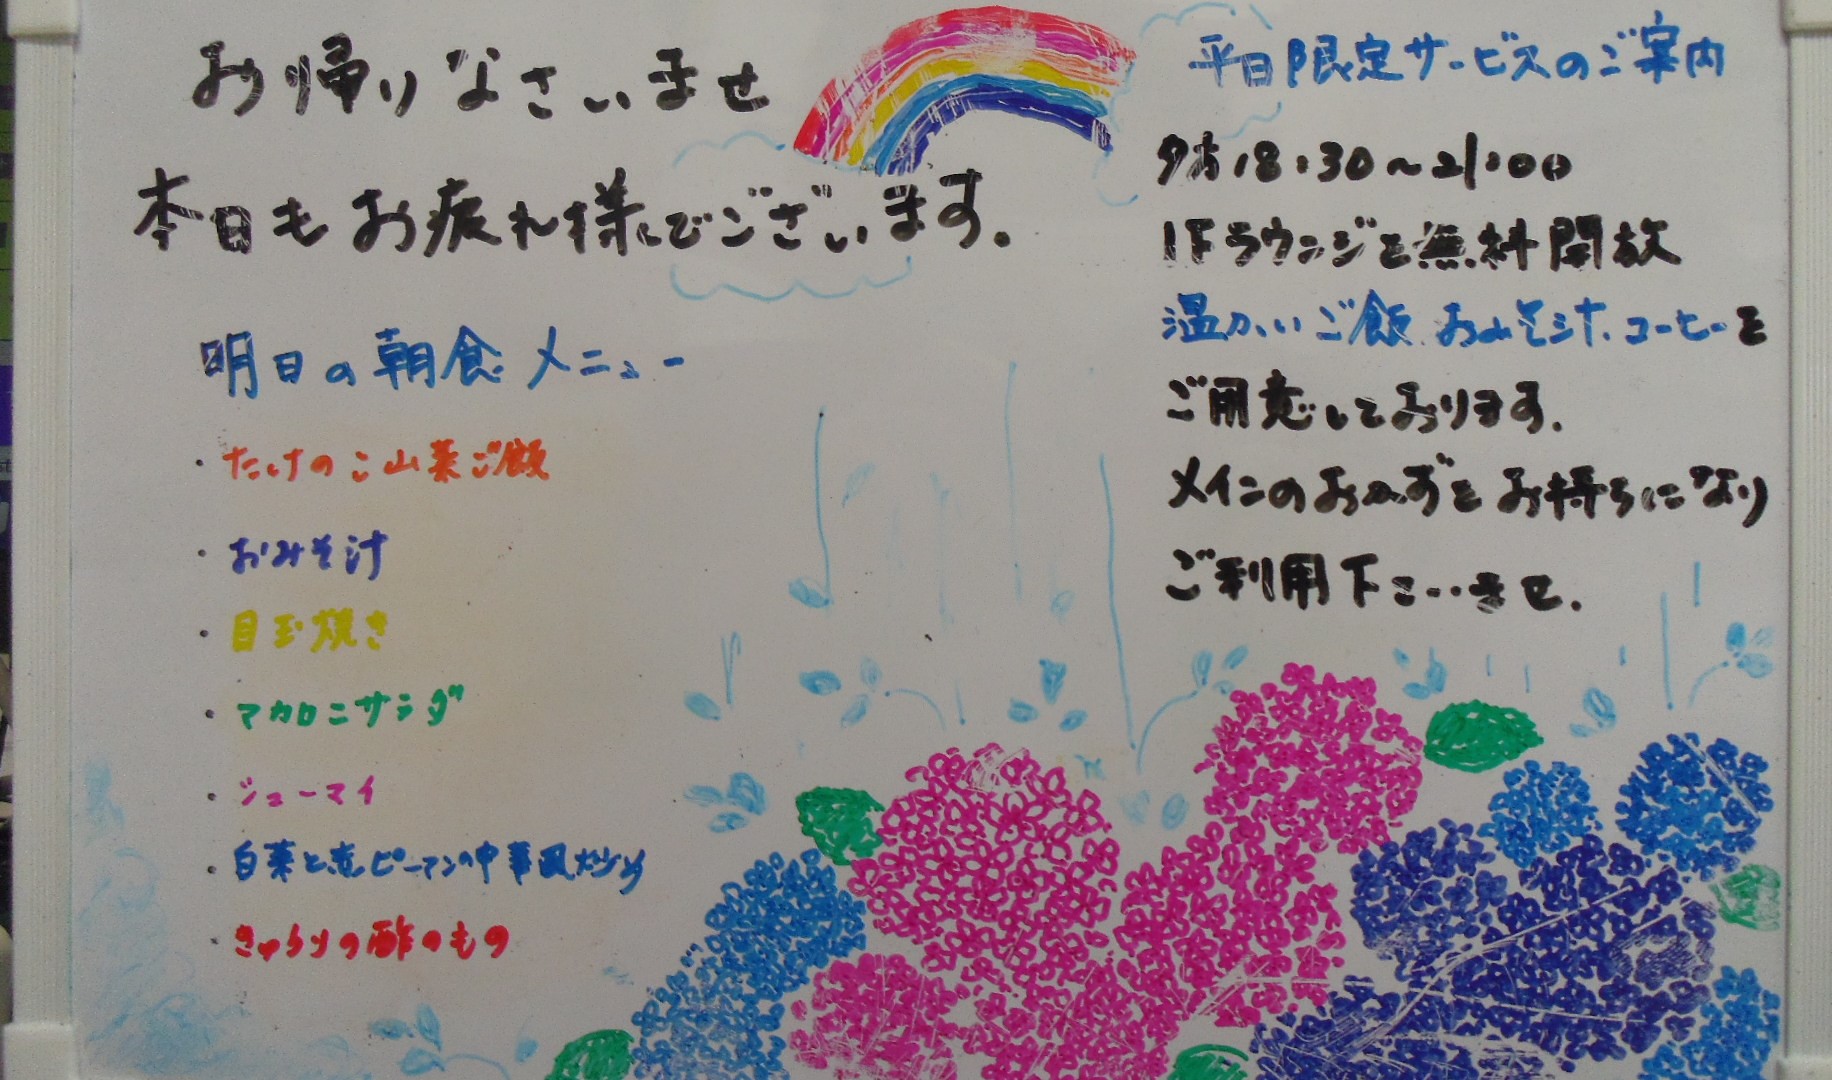 お帰りなさいませ
本日もお疲れ様でございます。
明日の朝食メニュー
・たけのこ山菜ご飯
・おみそ汁
・目玉焼き
・マカロニサラダ
・シューマイ
・白菜と恋ピーマンの中華風炒め
・きゅうりの酢のもの
平日限定サービスのご案内
夕方18:30～21:00
1Fラウンジを無料開放
温かいご飯、おみそ汁、コーヒーを
ご用意しております。
メインのおかずをお持ちになり
ご利用下さいませ。